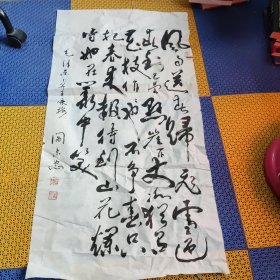 风雨送春歸飛雪迎
春到已是悬崖百丈冰犹有
花枝俏俏也不争春只
把春来报待到山花爛
漫时她在叢中笑
毛泽东卜算子咏梅